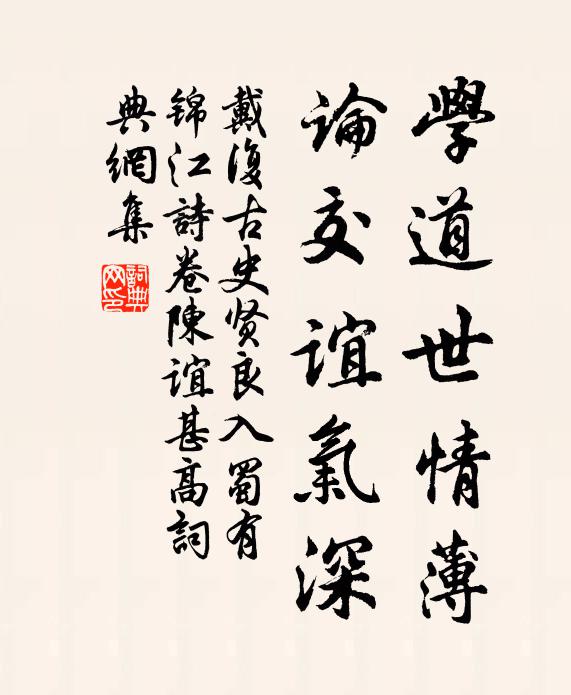 學道世情薄
論交誼氣深
戴復古史贤良入蜀有
锦江詩卷陳誼甚高詞
典網集
詞典
网印